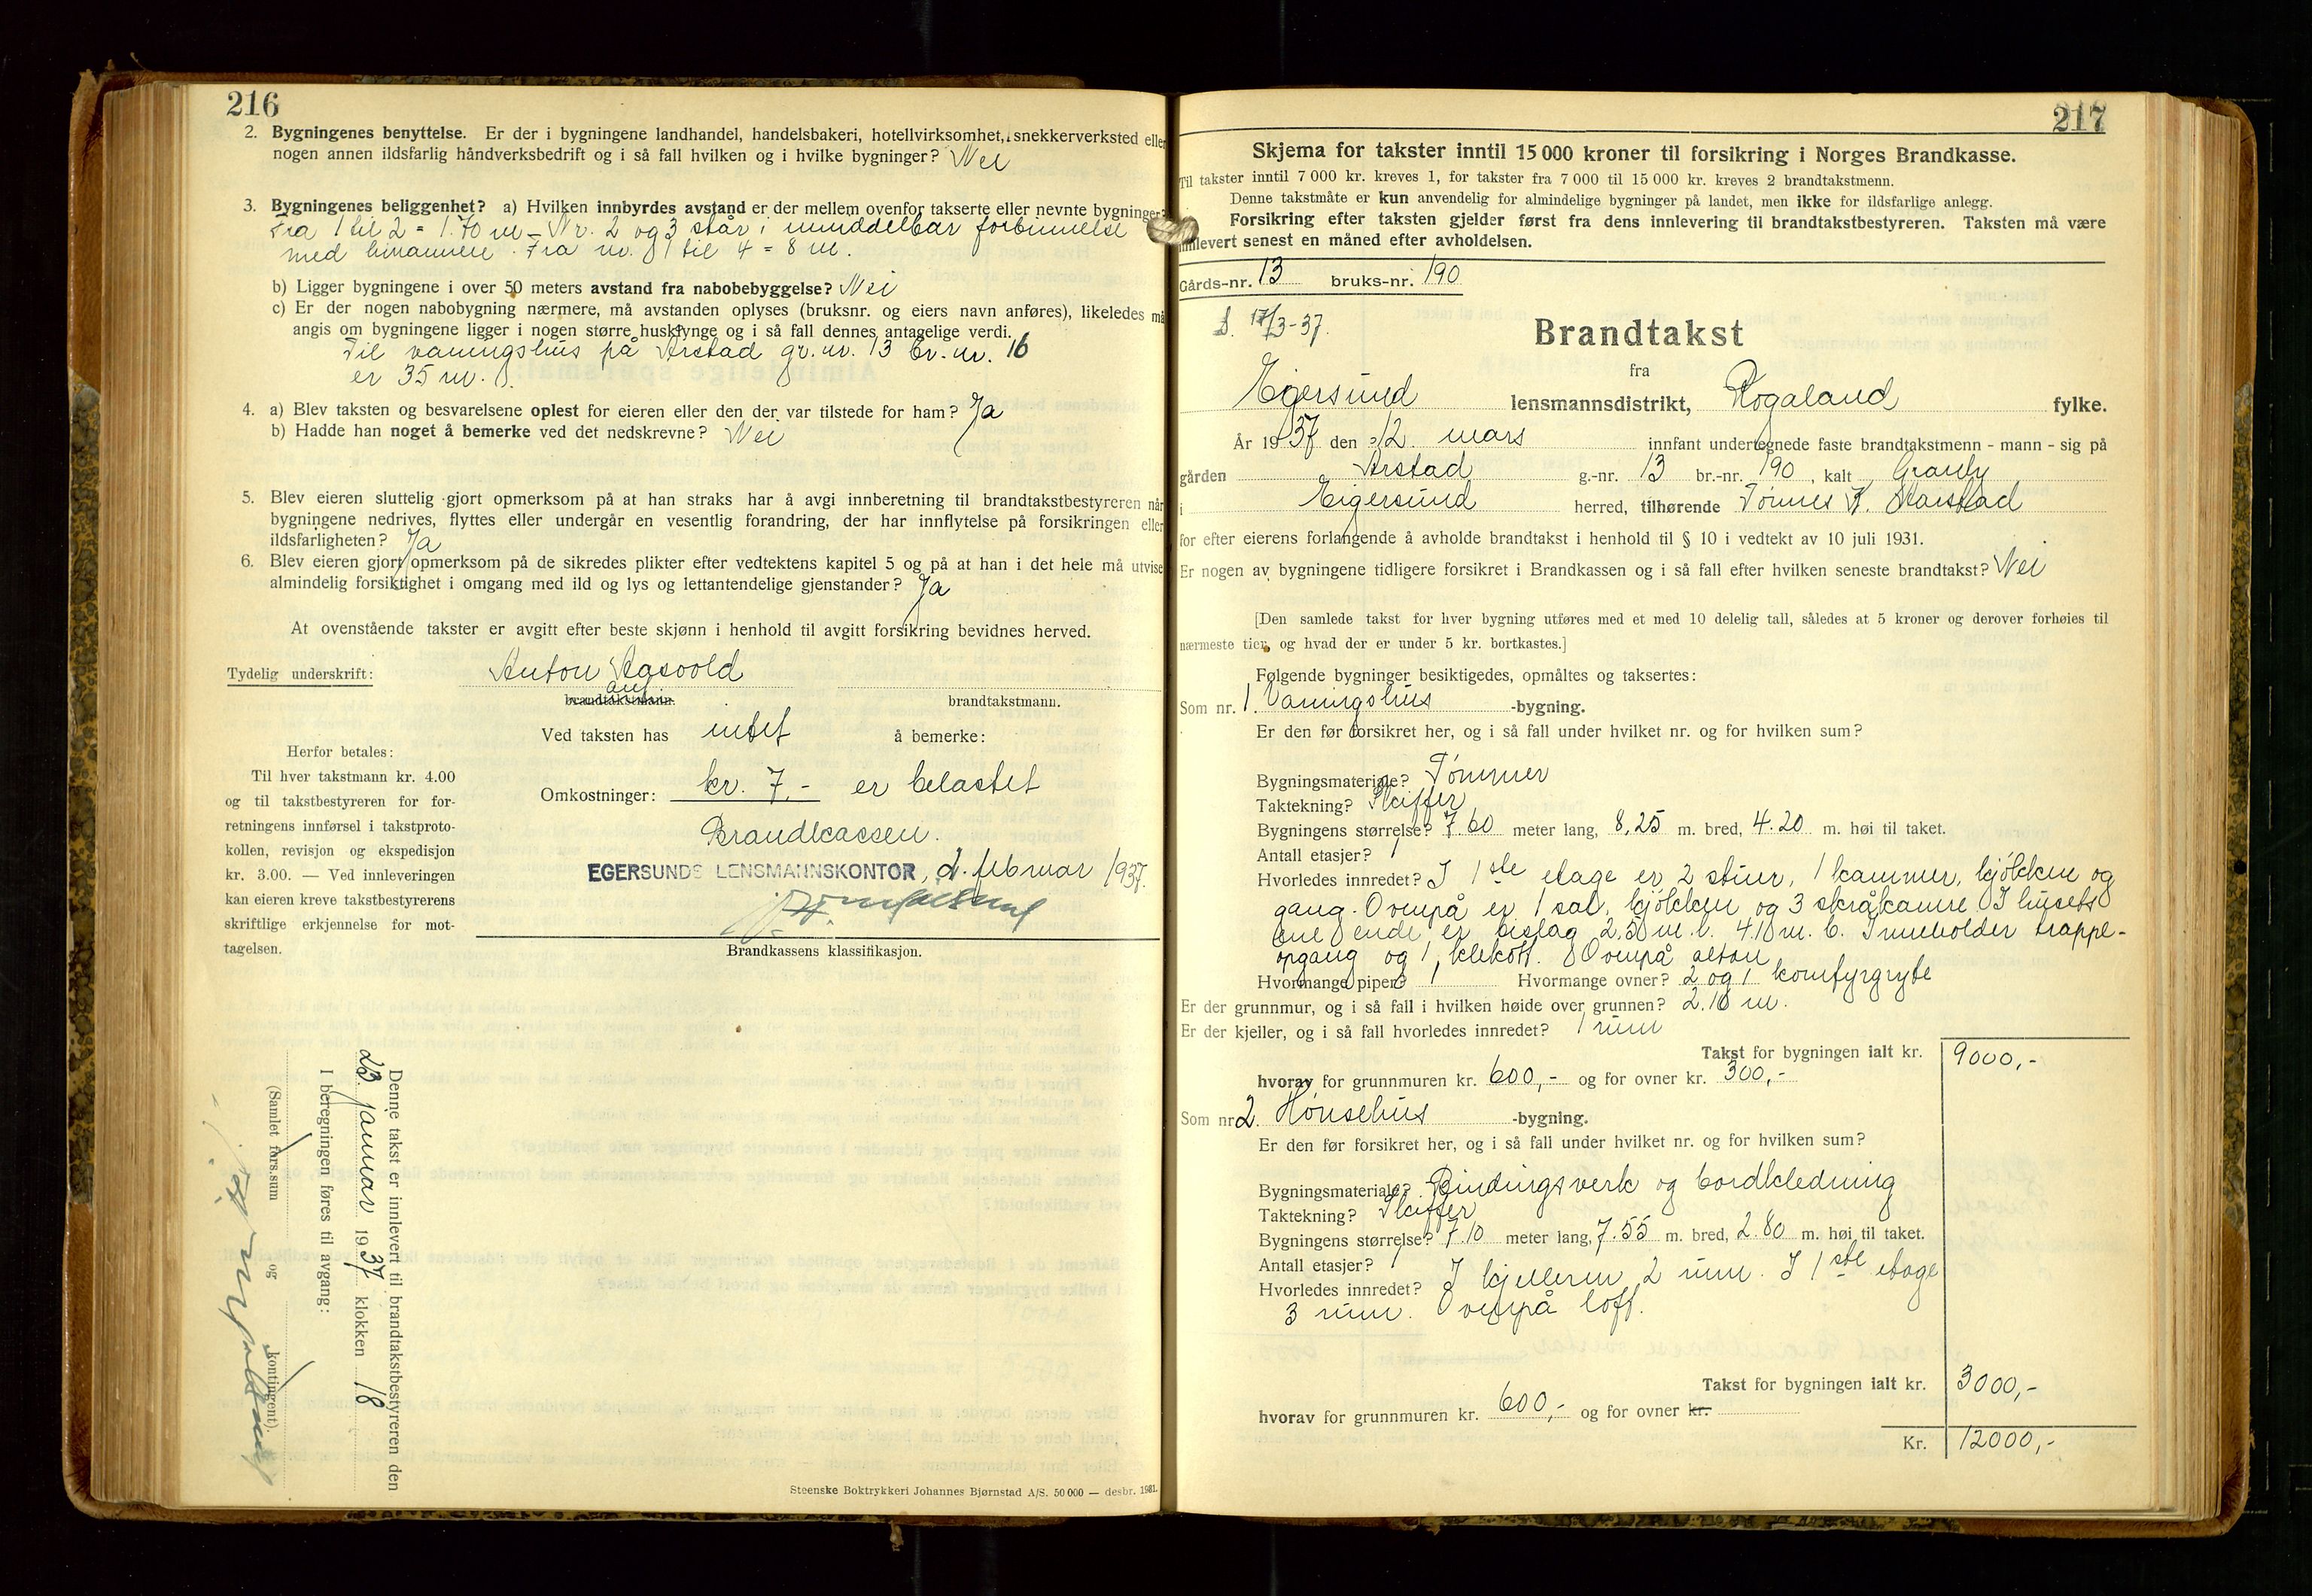 216
2. Bygningenes benyttelse. Er der i bygningene landhandel, handelsbakeri, hotellvirksomhet, snekkerverksted eller
nogen annen ildsfarlig håndverksbedrift og i så fall hvilken og i hvilke bygninger? Nei
3. Bygningenes beliggenhet? a) Hvilken innbyrdes avstand er der mellem ovenfor takserte eller nevnte bygninger?
Fra 1 til 2 = 1.70 m - Nr. 2 og 3 står i umiddelbar forbinnelse
med hinannen. Fra nr. 1 til 4 = 8 m.
b) Ligger bygningene i over 50 meters avstand fra nabobebyggelse? Nei
c) Er der nogen nabobygning nærmere, må avstanden oplyses (bruksnr. og eiers navn anføres), likeledes må
angis om bygningene ligger i nogen større husklynge og i så fall dennes antagelige verdi.
Til vaningshus på Årstad gr. nr. 13 br. nr. 16
er 35 m.
4. a) Blev taksten og besvarelsene oplest for eieren eller den der var tilstede for ham? Ja
b) Hadde han noget å bemerke ved det nedskrevne? Nei
5. Blev eieren sluttelig gjort opmerksom på at han straks har å avgi innberetning til brandtakstbestyreren når
bygningene nedrives, flyttes eller undergår en vesentlig forandring, der har innflytelse på forsikringen eller
ildsfarligheten? Ja
6. Blev eieren gjort opmerksom på de sikredes plikter efter vedtektens kapitel 5 og på at han i det hele må utvise
almindelig forsiktighet i omgang med ild og lys og lettantendelige gjenstander? Ja
At ovenstående takster er avgitt efter beste skjønn i henhold til avgitt forsikring bevidnes herved.
Tydelig underskrift: Anton Aasvold
brandtakstmann. brandtakstmann.
Ved taksten has intet å bemerke:
Herfor betales:
Til hver takstmann kr. 4.00
og til takstbestyreren for for-
retningens innførsel i takstproto-
kollen, revisjon og ekspedisjon
kr. 3.00. — Ved innleveringen
kan eieren kreve takstbestyrerens
skriftlige erkjennelse for mot-
tagelsen.
Omkostninger: kr. 7,- er belastet
Brandkassen.
EGERSUNDS LENSMANNSKONTOR, d. februar 1937.
Brandkassens klassifikasjon.
Denne takst er innlevert til brandtakstbestyreren den
23. januar 1937 klokken 18
I beregningen føres til avgang:
(Samlet fors.sum og kontingent).
Steenske Boktrykkeri Johannes Bjørnstad A/S. 50 000 — desbr. 1931.
217
Skjema for takster inntil 15 000 kroner til forsikring i Norges Brandkasse.
Til takster inntil 7 000 kr. kreves 1, for takster fra 7 000 til 15 000 kr. kreves 2 brandtakstmenn.
Denne takstmåte er kun anvendelig for almindelige bygninger på landet, men ikke for ildsfarlige anlegg.
Forsikring efter taksten gjelder først fra dens innlevering til brandtakstbestyreren. Taksten må være
innlevert senest en måned efter avholdelsen.
Gårds-nr. 13 bruks-nr. 190
17/3-37.
Brandtakst
fra
Eigersund lensmannsdistrikt, Rogaland fylke.
År 1937 den 12 mars innfant undertegnede faste brandtakstmenn - mann - sig på
gården Årstad g.-nr. 13 br.-nr. 190, kalt Granly
i Eigersund herred, tilhørende Tønnes K.
for efter eierens forlangende å avholde brandtakst i henhold til § 10 i vedtekt av 10 juli 1931.
Er nogen av bygningene tidligere forsikret i Brandkassen og i så fall efter hvilken seneste brandtakst? Nei
[Den samlede takst for hver bygning utføres med et med 10 delelig tall, således at 5 kroner og derover forhøies til
nærmeste tier, og hvad der er under 5 kr. bortkastes.]
Følgende bygninger besiktigedes, opmåltes og taksertes:
Som nr. 1. Vaningshus -bygning.
Er den før forsikret her, og i så fall under hvilket nr. og for hvilken sum?
Bygningsmateriale? Tømmer
Taktekning? Skiffer
Bygningens størrelse? 7.60 meter lang, 8.25 m. bred, 4.20 m. høi til taket.
Antall etasjer? 1
Hvorledes innredet? I 1ste etage er 2 stuer, 1 kammer, kjökken og
gang. Ovenpå er 1 sal, kjökken og 3 skråkamre. I husets
ene ende er bislag 2.50 m. l. 4.10 m. b. Inneholder trappe-
opgang og 1 klekott. Ovenpå altan
Hvormange piper? 1 Hvormange ovner? 2 og 1 komfyrgryte
Er der grunnmur, og i så fall i hvilken høide over grunnen? 2.10 m.
Er der kjeller, og i så fall hvorledes innredet? 1 rum
Takst for bygningen ialt kr. 9000,-
hvorav for grunnmuren kr. 600,- og for ovner kr. 300,-
Som nr. 2. Hønsehus -bygning.
Er den før forsikret her, og i så fall under hvilket nr. og for hvilken sum?
Bygningsmateriale? Bindingsverk og bordkledning
Taktekning? Skiffer
Bygningens størrelse? 7.10 meter lang, 7.55 m. bred, 2.80 m. høi til taket.
Antall etasjer? 1
Hvorledes innredet? I kjelleren 2 rum. I 1ste etage
3 rum. Ovenpå loft.
Takst for bygningen ialt kr. 3000,-
hvorav for grunnmuren kr. 600,- og for ovner kr.
Kr. 12000,-